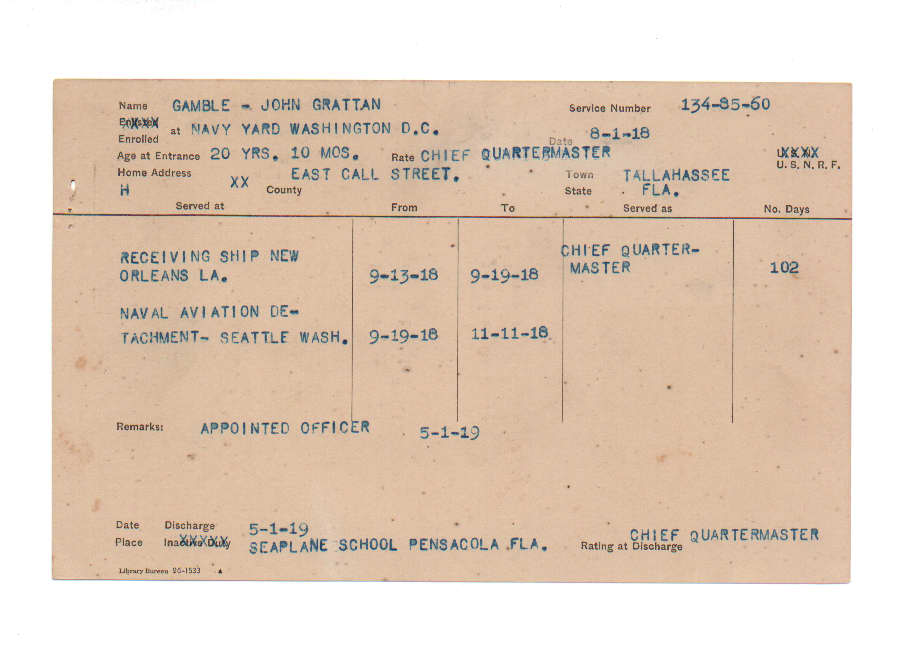 Name GAMBLE - JOHN GRATTAN Service Number 134-85-60
Enlisted
Enrolled at NAVY YARD WASHINGTON D.C. Date 8-1-18
Age at Entrance 20 YRS. 10 MOS. Rate CHIEF QUARTERMASTER U.S.N.
U. S. N. R. F.
Home Address EAST CALL STREET. Town TALLAHASSEE
H XX County State FLA.
Served at From To Served as No. Days
RECEIVING SHIP NEW CHIEF QUARTER-
ORLEANS LA. 9-13-18 9-19-18 MASTER 102
NAVAL AVIATION DE-
TACHMENT- SEATTLE WASH. 9-19-18 11-11-18.
Remarks: APPOINTED OFFICER 5-1-19
Date Discharge 5-1-19
Place Inactive Duty SEAPLANE SCHOOL PENSACOLA FLA. Rating at Discharge CHIEF QUARTERMASTER
Library Bureau 26-1533